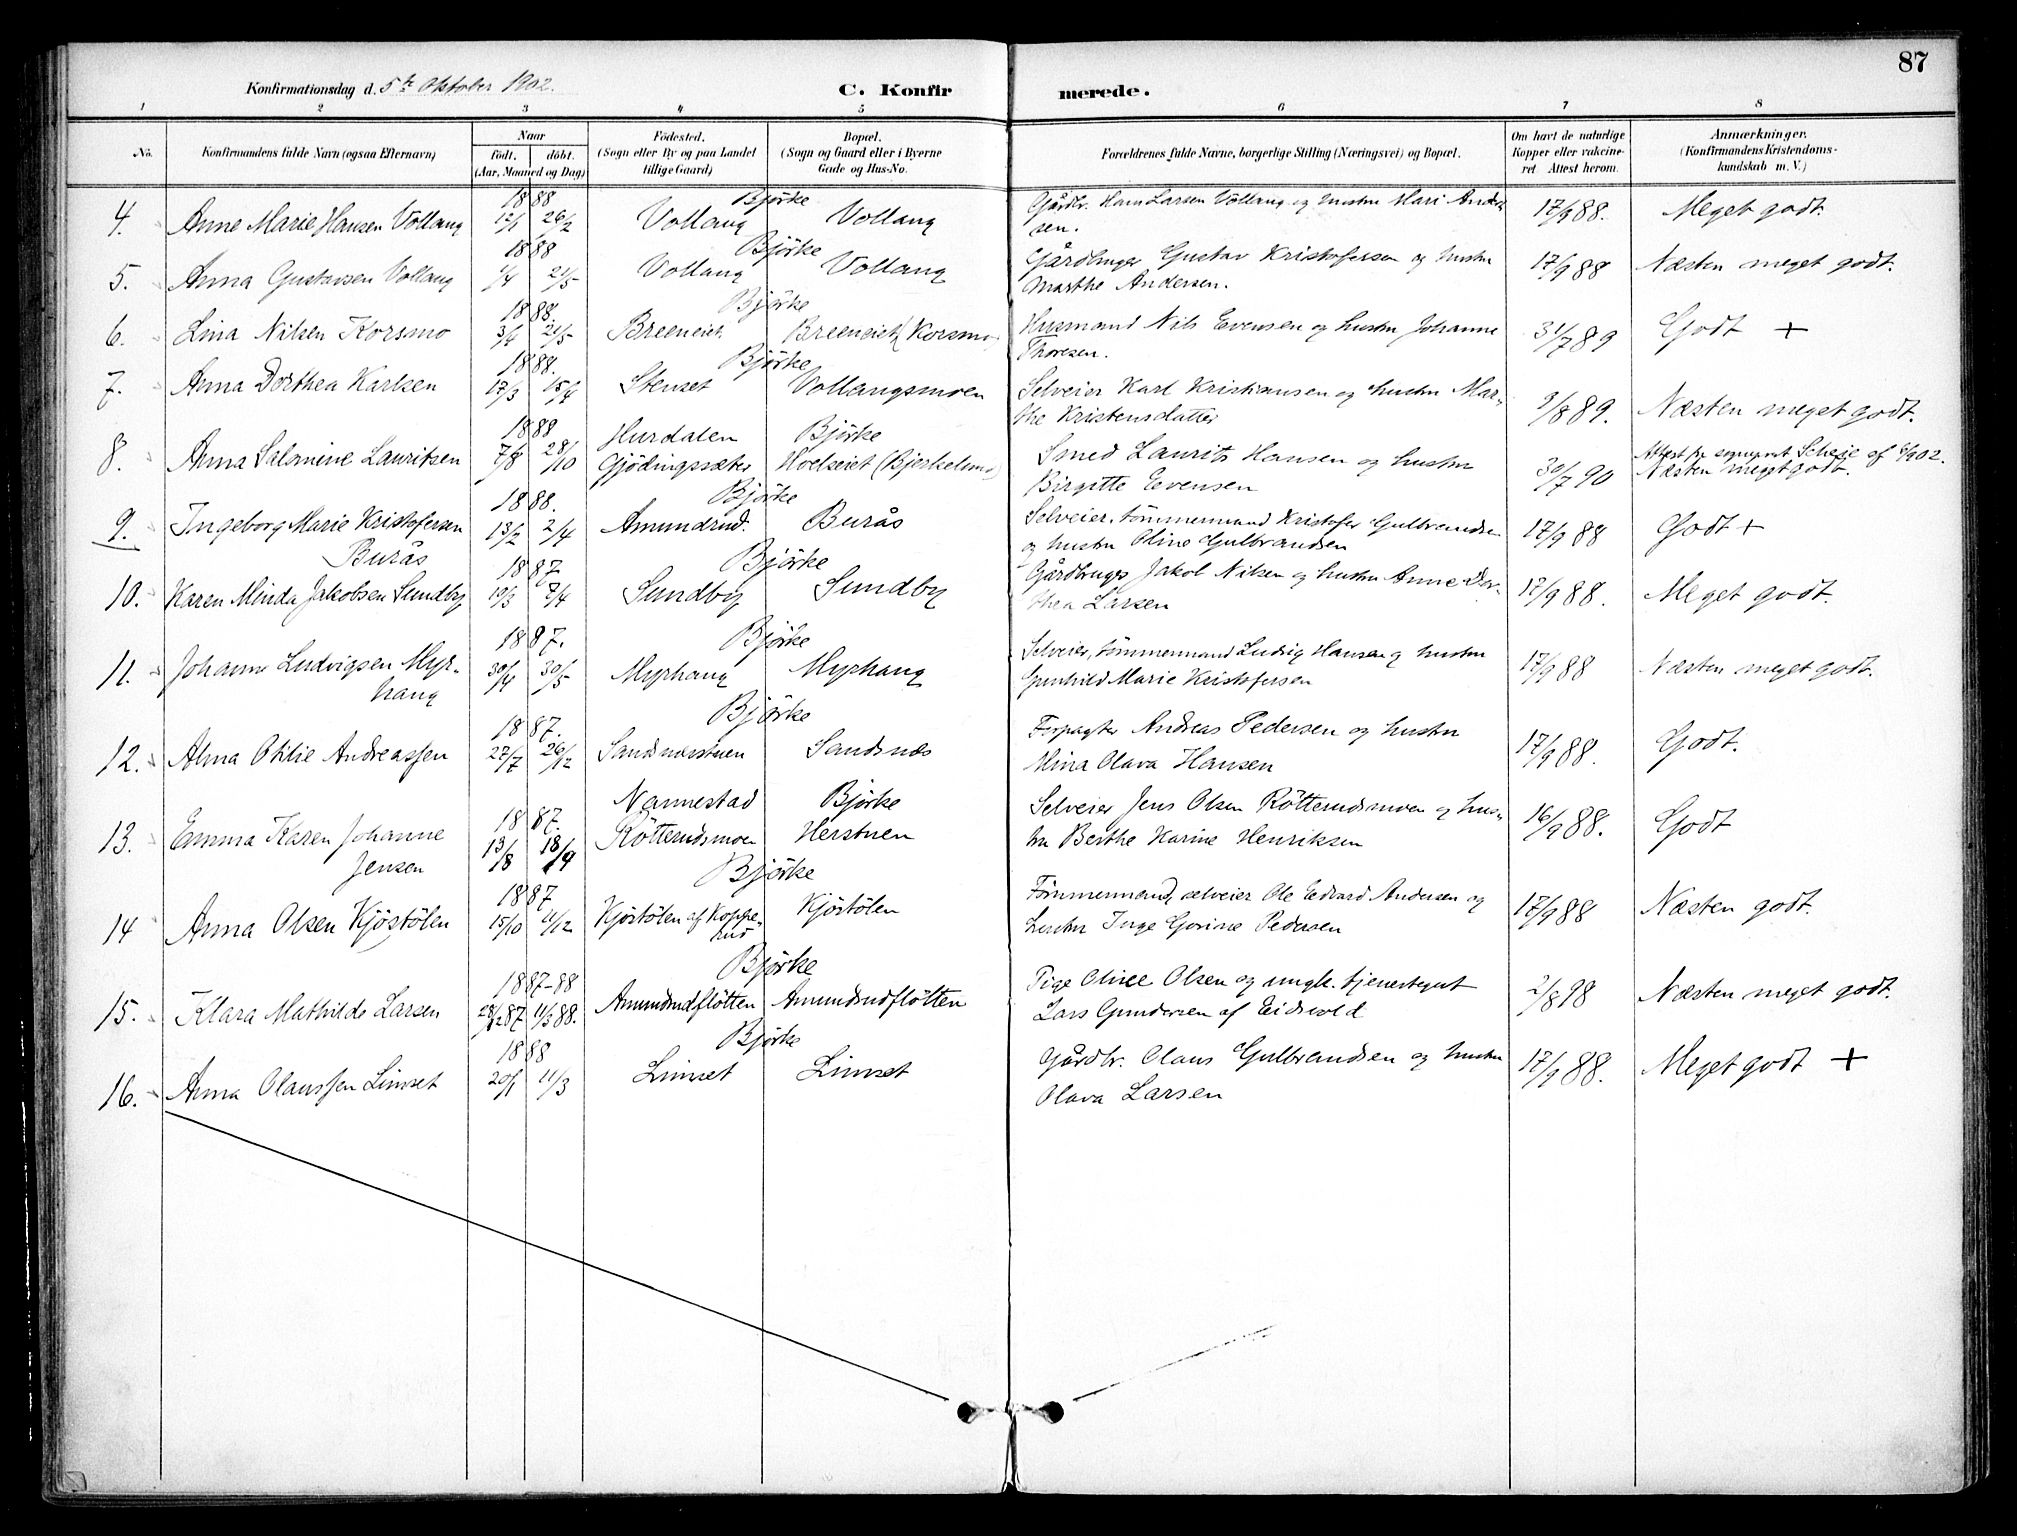 87
Konfirmationsdag d. 5te Oktober 1902.
C. Konfirmerede.
1 2 3 4 5 6 7 8
No.
Konfirmandens fulde Navn (ogsaa Efternavn)
Naar
født. døbt.
(Aar, Maaned og Dag)
Fødested.
(Sogn eller By og paa Landet
tillige Gaard)
Bopæl.
(Sogn og Gaard eller i Byerne
Gade og Hus-No.
Forældrenes fulde Navne, borgerlige Stilling (Næringsvei) og Bopæl.
Om havt de naturlige
Kopper eller vakcine-
ret. Attest herom.
Anmærkninger.
(Konfirmandens Kristendoms-
kundskab m. V.)
1888 Björke
4. Anne Marie Hansen Vollang 12/1 26/2 Vollang Vollang Gårdbr. Hans Larsen Vollang og hustru Mari Ander-
sen. 17/9 88. Meget godt.
1888 Björke
5. Anna Gustavsen Vollang 1/4 21/5 Vollang Vollang Gårdbruger Gustav Kristofersen og hustru
Marthe Andersen. 17/9 88 Næsten meget godt.
1888. Björke
6. Lina Nilsen Korsmo 3/4 21/5 Breeneiet. Breeneiet (Korsmo) Husmand Nils Evensen og hustru Johanne
Thoresen. 31/7 89 Godt +
1888. Björke
7. Anna Dorthea Karlsen 17/3 15/4 Stenset Vollangsmoen Selveier Karl Kristiansen og hustru Mar-
the Kristensdatter 9/8 89. Næsten meget godt.
1888 Hurdalen Björke
8. Anna Salomine Lauritsen 7/8 28/10 Gjödingssæter Hoelseiet (Bjerkelund) Smed Laurits Hansen og hustru
Birgitte Evensen 30/7 90 Attest fra sognepræst Scheie af 6/9 02.
Næsten meget godt.
1888. Björke
9. Ingeborg Marie Kristofersen
Burås 13/2 2/4 Amundrud. Burås Selveier, tömmermand Kristofer Gulbrandsen
og hustru Oline Gulbrandsen 17/9 88 Godt +
1887 Björke
10. Karen Minda Jakobsen Sundby 19/3 7/4 Sundby Sundby Gårdbruger Jakob Nilsen og hustru Anne Dor-
thea Larsen 17/9 88. Meget godt.
1887. Björke
11. Johanne Ludvigsen Myr-
hang 30/4 30/5 Myrhang Myrhang Selveier, tömmermand Ludvig Hansen og hustru
Gunhild Marie Kristofersen 17/9 88 Næsten meget godt.
1887. Björke
12. Alma Otilie Andreassen 27/7 26/12 Sandsnæsstuen Sandsnæs Forpagter Andreas Pedersen og hustru
Mina Olava Hansen 17/9 88. Godt.
1887. Nannestad Björke
13. Emma Karen Johanne
Jensen 13/8 18/9 Rötterudsmoen Herstuen Selveier Jens Olsen Rötterudsmoen og hus-
tru Berthe Karine Henriksen 16/9 88. Godt
1887 Björke
14 Anna Olsen Kjöstölen 15/10 11/12 Kjöstölen af Koppe-
rud Kjöstölen Tömmermand, selveier Ole Edvard Andersen og
hustru Inge Gorine Pedersen 17/9 88 Næsten godt.
1887-88 Björke
15. Klara Mathilde Larsen 28/12 87 11/3 88. Amundrudflötten Amundrudflötten Pige Oline Olsen og ungk. tjenestegut
Lars Gundersen af Eidsvold 2/8 98 Næsten meget godt.
1888 Björke
16. Anna Olaussen Limset 20/1 11/3 Limset Limset Gårdbr. Olaus Gulbrandsen og hustru
Olava Larsen 17/9 88. Meget godt +